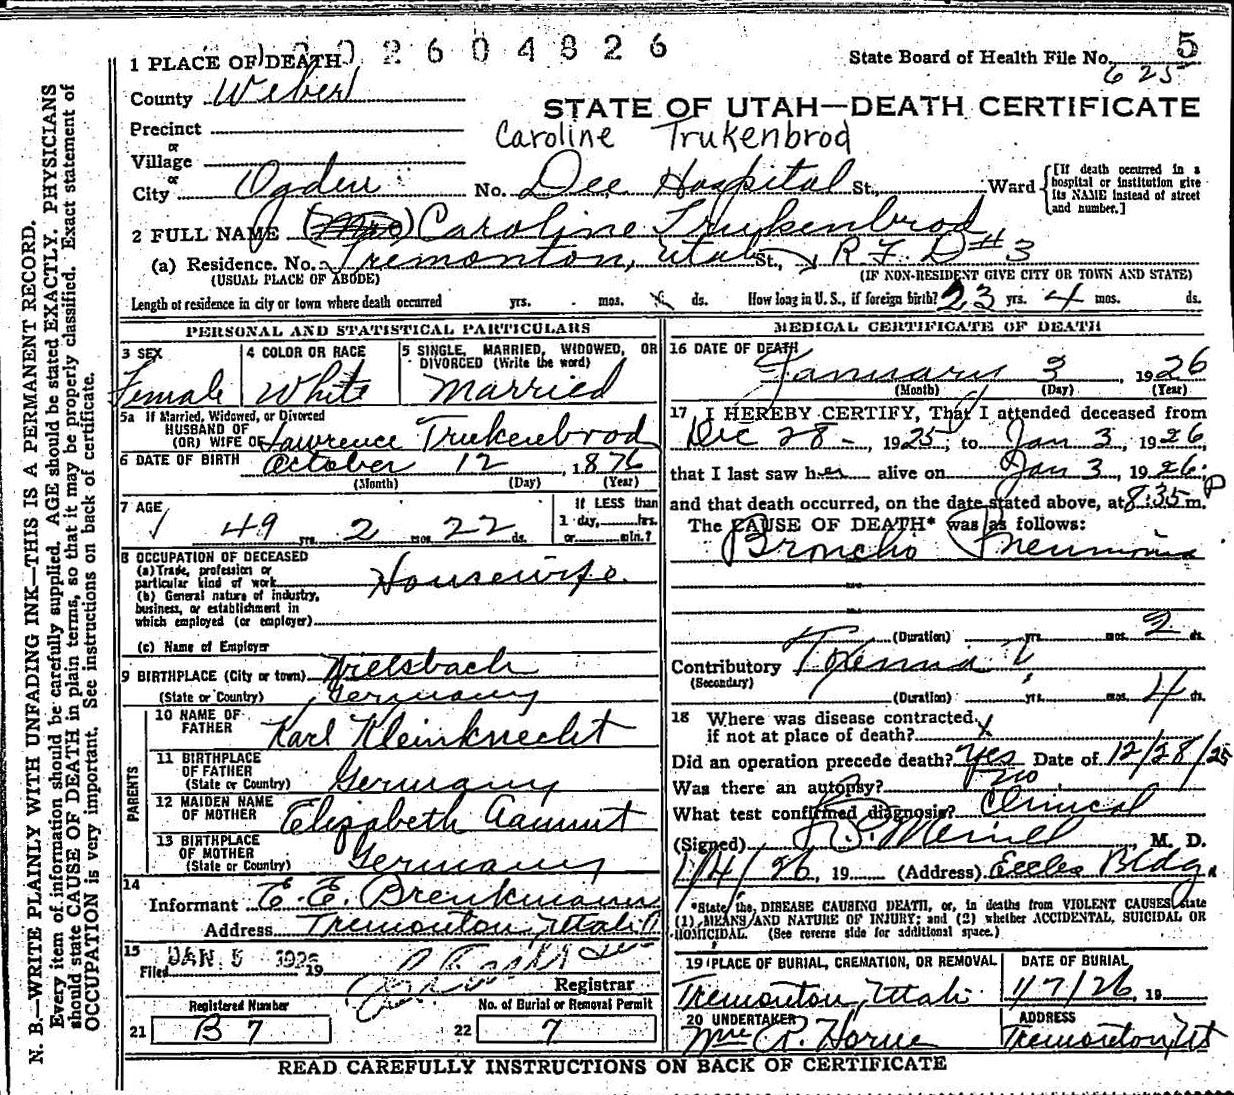 2604826
1 PLACE OF DEATH
State Board of Health File No. 5
625
County Weber
STATE OF UTAH—DEATH CERTIFICATE
Precinct
Caroline Trukenbrod
or
Village
or
City Ogden No. Dee Hospital St., Ward
[If death occurred in a hospital or institution give its NAME instead of street and number.]
2 FULL NAME (Mrs) Caroline Trukenbrod
(a) Residence. No. Tremonton, Utah St., R.F.D #3
(USUAL PLACE OF ABODE) (IF NON-RESIDENT GIVE CITY OR TOWN AND STATE)
Length of residence in city or town where death occurred yrs. mos. ds. How long in U. S., if foreign birth? 23 yrs. 4 mos. ds.
PERSONAL AND STATISTICAL PARTICULARS
3 SEX
Female
4 COLOR OR RACE
White
5 SINGLE, MARRIED, WIDOWED, OR
DIVORCED (Write the word)
Married
5a If Married, Widowed, or Divorced
HUSBAND OF
(OR) WIFE OF Lawrence Trukenbrod
6 DATE OF BIRTH October 12, 1876
(Month) (Day) (Year)
7 AGE
49 yrs. 2 mos. 22 ds.
If LESS than
1 day, hrs.
or min.?
8 OCCUPATION OF DECEASED
(a) Trade, profession or
particular kind of work Housewife
(b) General nature of industry,
business, or establishment in
which employed (or employer)
(c) Name of Employer
9 BIRTHPLACE (City or town)
(State or Country) Germany
PARENTS
10 NAME OF
FATHER Karl Kleinknecht
11 BIRTHPLACE
OF FATHER
(State or Country) Germany
12 MAIDEN NAME
OF MOTHER Elizabeth
13 BIRTHPLACE
OF MOTHER
(State or Country) Germany
14
Informant E. E. Brenkmann
Address Tremonton, Utah
15
Filed JAN 5 1926 19
Registrar
Registered Number
21 B 7
No. of Burial or Removal Permit
22 7
MEDICAL CERTIFICATE OF DEATH
16 DATE OF DEATH
January 3, 1926
(Month) (Day) (Year)
17 I HEREBY CERTIFY, That I attended deceased from
Dec 28 - 1925, to Jan 3, 1926,
that I last saw her alive on Jan 3, 1926;
and that death occurred, on the date stated above, at 8:35 P m.
The CAUSE OF DEATH* was as follows:
Broncho Pneumonia
(Duration) yrs. mos. 2 ds.
Contributory
(Secondary)
(Duration) yrs. mos. 4 ds.
18 Where was disease contracted
if not at place of death? x
Did an operation precede death? Yes Date of 12/28/25
Was there an autopsy? no
What test confirmed diagnosis? Clinical
(Signed) Merrill M. D.
1/4/26, 19 (Address) Eccles Bldg.
*State the DISEASE CAUSING DEATH, or, in deaths from VIOLENT CAUSES, state
(1) MEANS AND NATURE OF INJURY; and (2) whether ACCIDENTAL, SUICIDAL OR
HOMICIDAL. (See reverse side for additional space.)
19 PLACE OF BURIAL, CREMATION, OR REMOVAL
Tremonton, Utah
DATE OF BURIAL
1/7/26, 19
20 UNDERTAKER
Mme R. Horne
ADDRESS
Tremonton, Ut
READ CAREFULLY INSTRUCTIONS ON BACK OF CERTIFICATE
N. B.—WRITE PLAINLY WITH UNFADING INK—THIS IS A PERMANENT RECORD.
Every item of information should be carefully supplied. AGE should be stated EXACTLY. PHYSICIANS
should state CAUSE OF DEATH in plain terms, so that it may be properly classified. Exact statement of
OCCUPATION is very important. See instructions on back of certificate.